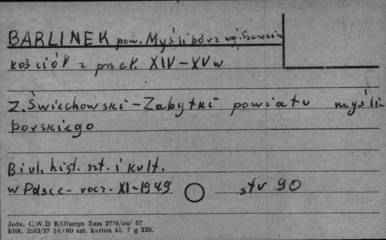 BARLINEK pow. Myślibórz woj. Szczecin
kościół z przeł. XIV-XV w
Z. Świechowski - Zabytki powiatu myśli
borskiego
Biul. hist. szt. i kult.
w Polsce - rocz. XI-1949 str 90
Jedn. C.W.D B/Olsztyn Zam 2776/on/ 57
Bltk. 2563/57 10.000 szt. karton kl. 7 g 220.